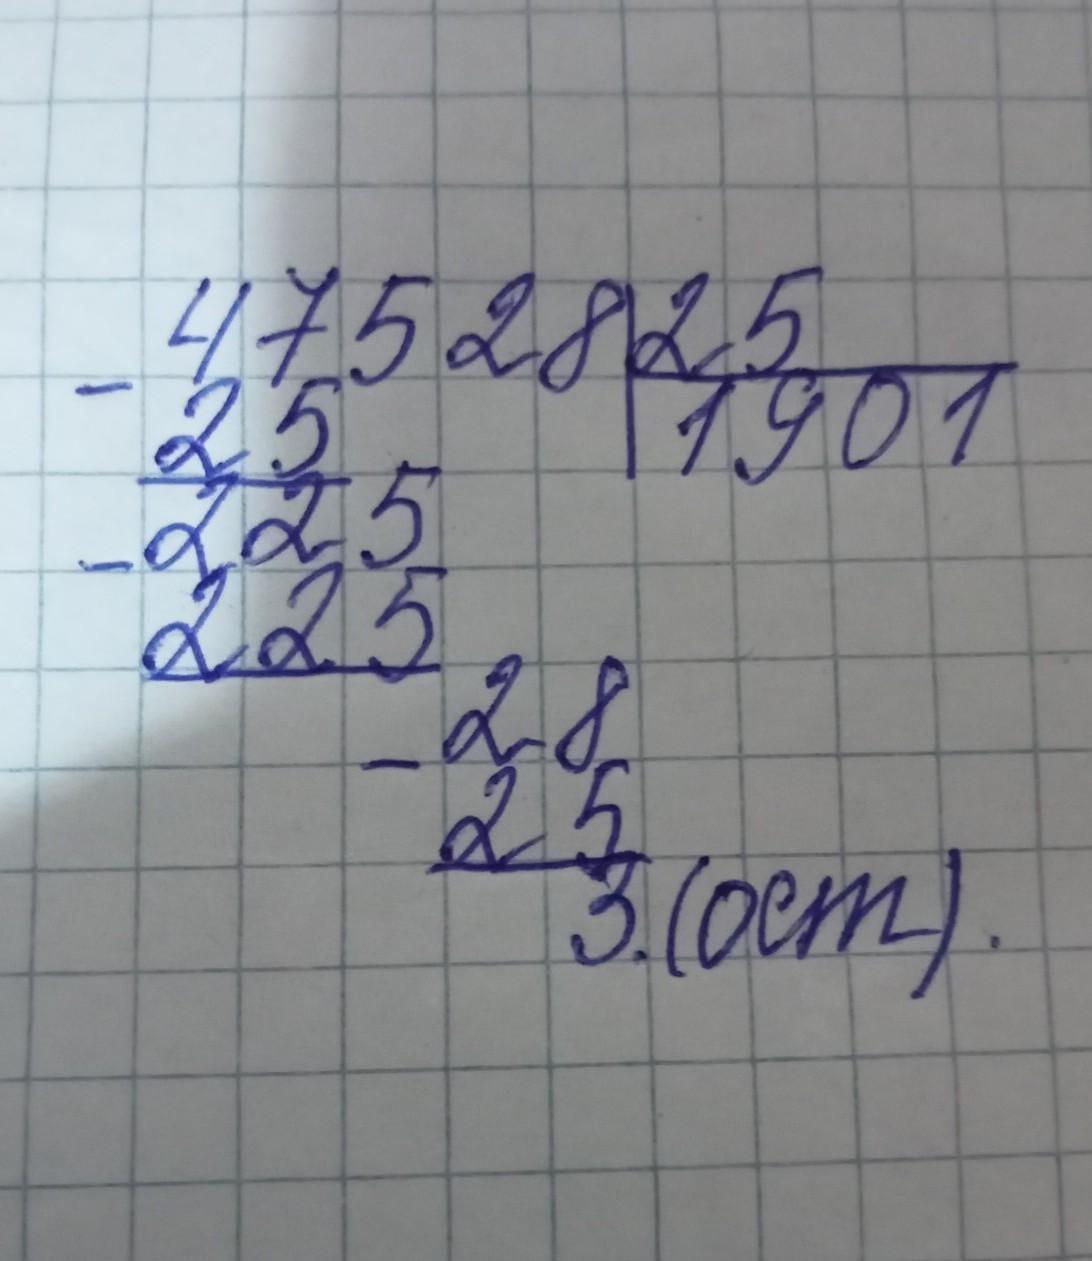 - 47528 | 25
25 | 1901
- 225
225
- 28
25
3.(ост).